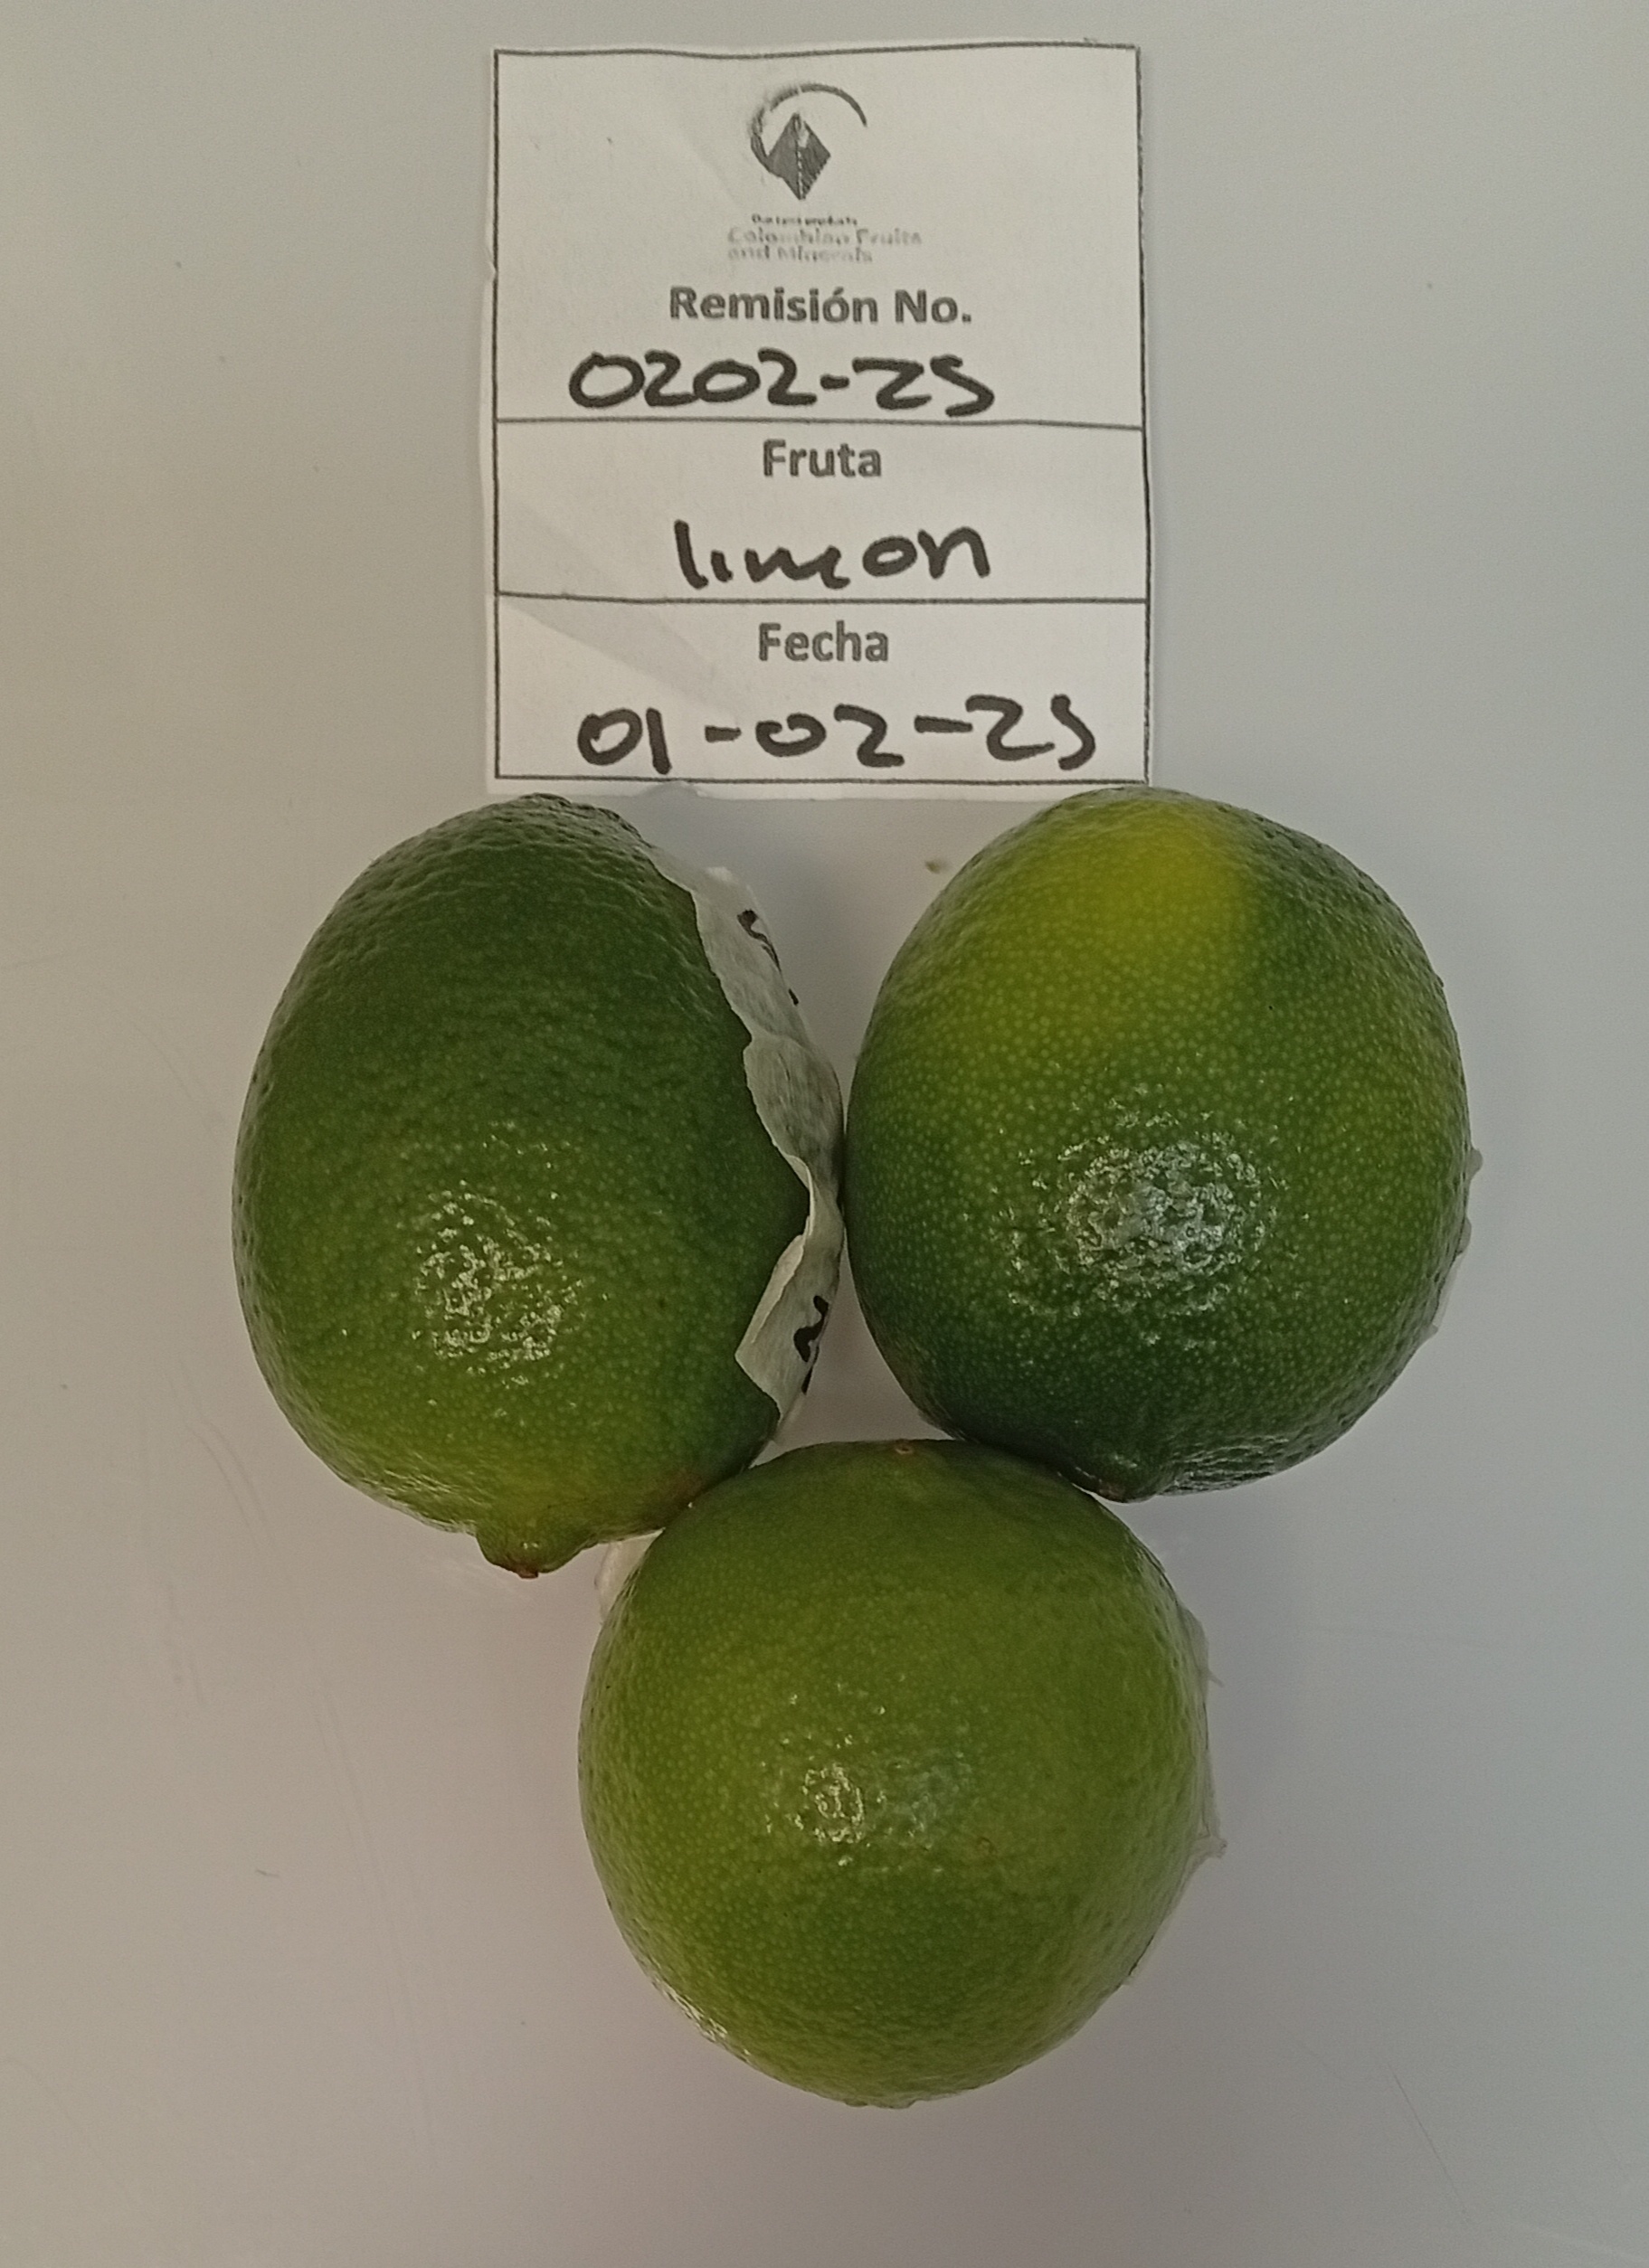 Our best products
Colombian Fruits
and Minerals
Remisión No.
0202-25
Fruta
limon
Fecha
01-02-25